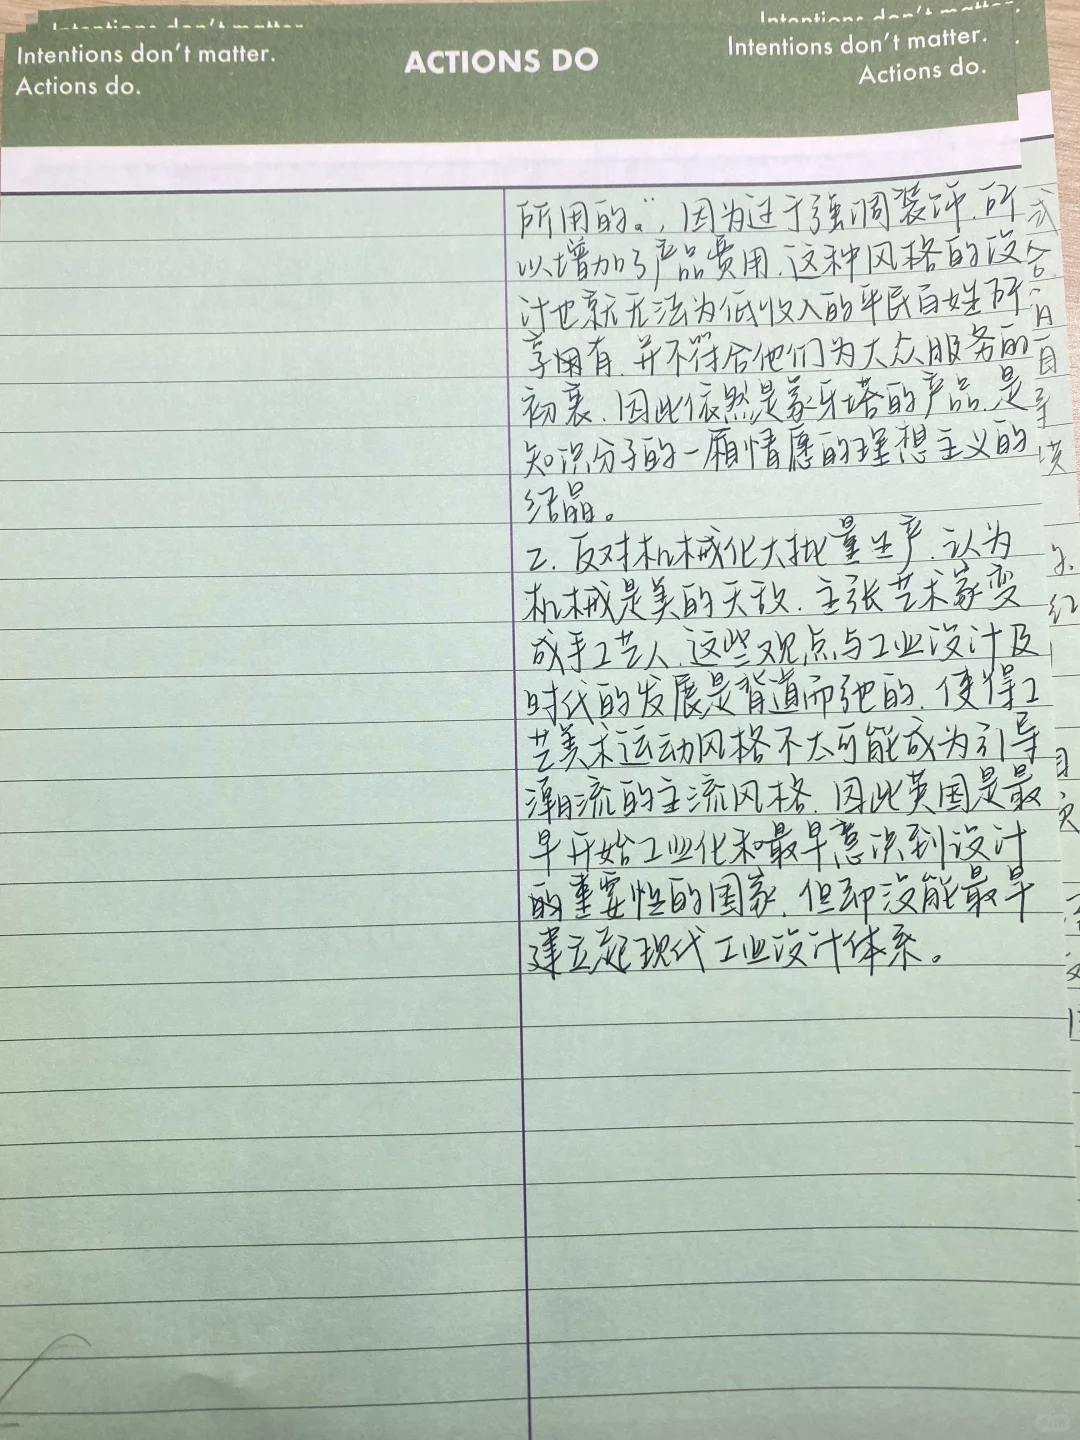 Intentions don't matter.
Intentions don't matter.
Intentions don't matter.
Actions do.
ACTIONS DO
Intentions don't matter.
Actions do.
所用的。”,因为过于强调装饰,所
以增加了产品费用,这种风格的设
计也就无法为低收入的平民百姓所
享用有,并不符合他们为大众服务的
初衷,因此依然是象牙塔的产品,是
知识分子的一厢情愿的理想主义的
结晶。
2. 反对机械化大批量生产,认为
机械是美的天敌,主张艺术家变
成手工艺人,这些观点与工业设计及
时代的发展是背道而驰的,使得工
艺美术运动风格不太可能成为引导
潮流的主流风格,因此英国是最
早开始工业化和最早意识到设计
的重要性的国家,但却没能最早
建立起现代工业设计体系。